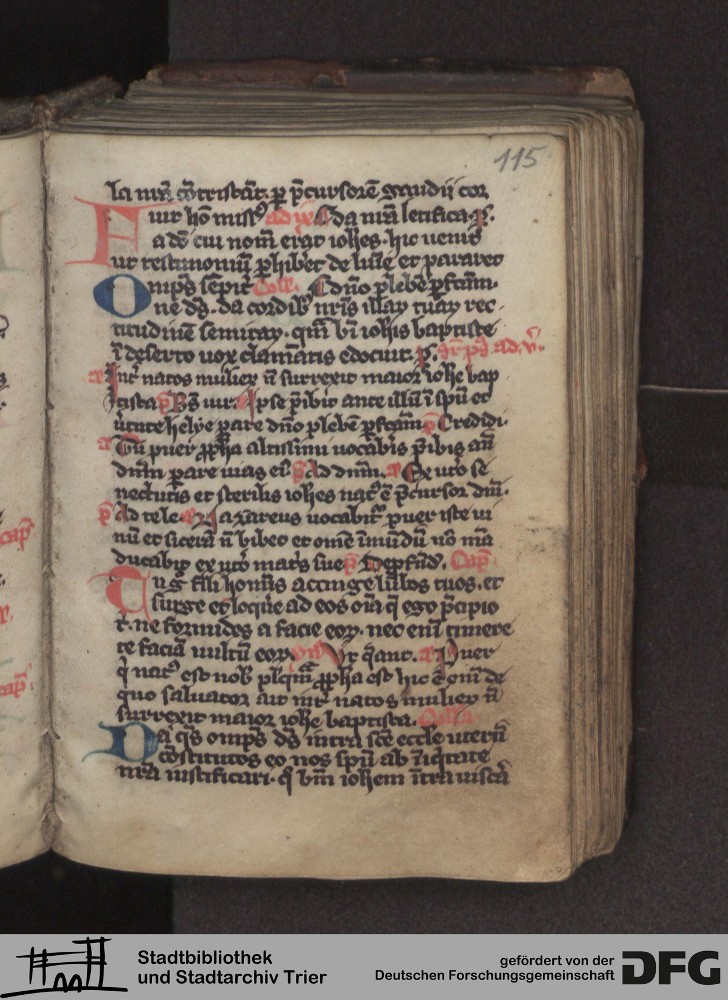 115
la nr̄a cōtristat᷑. ꝑ p̄cursorē gaudii cor
uit hō miss⁹ ad da nr̄a letifica. ꝶ.
a dō cui nom̄ erat ioh̄es. hic uenit
ut testimoniū ꝑhib̄et de lum̄e et pararet
omp̄s sēpit᷑ Coll. dn̄o plebē ꝑfctam.
ne ds̄. da cordib᷒ nr̄is illaꝝ tuaꝝ rec
titudinē semitaꝝ. quā bt̄i ioh̄is baptiste
ī deserto uox clamātis edocuit. ꝑ.
Int᷑ natos mulieꝝ n̄ surrexit maior ioh̄e bap
tista p̄ Bs̄ uir. Ip̄se p̄ibit ante illū ī sp̄u et
uirtute helye ꝑare dn̄o plebē ꝑfctam p̄ Credidi.
Tu puer ꝓpha altissimi uocab̄is p̄ibis an̄
dn̄m ꝑare uias ei᷒ p̄ Ad dn̄m. Ex ut᷑o se
nectutis et sterilis ioh̄es nat᷒ ē p̄cursor dn̄i.
p̄ Ad te le Nazareus uocabit᷑ puer iste ui
nū et sicerā n̄ bibet et om̄e īmūdū nō mā
ducabit ex ut᷑o mat᷑is sue p̄ De ꝓfūd. Cap̄
Tu g° fili hoīnis accinge lūbos tuos. et
surge et loq̄re ad eos oīa q̄ ego p̄cipio
t᷑. ne formides a facie eoꝝ. nec eni timere
te faciā uultū eoꝝ. Vt q̄ant. Puer
q̇ nat᷒ est nob̄ plq̄m ꝓpha est hic ē eni de
quo saluator ait int᷑ natos mulieꝝ n̄
surrexit maior ioh̄e baptista. Colla
Da q̄s omp̄s ds̄ intra scē eccl̄e uterū
cōstitutos eo nos sp̄u ab īiq̄tate
nr̄a iustificari. q° bt̄m ioh̄em īt᷑a uiscā
cap̄
cap̄
Stadtbibliothek
und Stadtarchiv Trier
gefördert von der
Deutschen Forschungsgemeinschaft
DFG